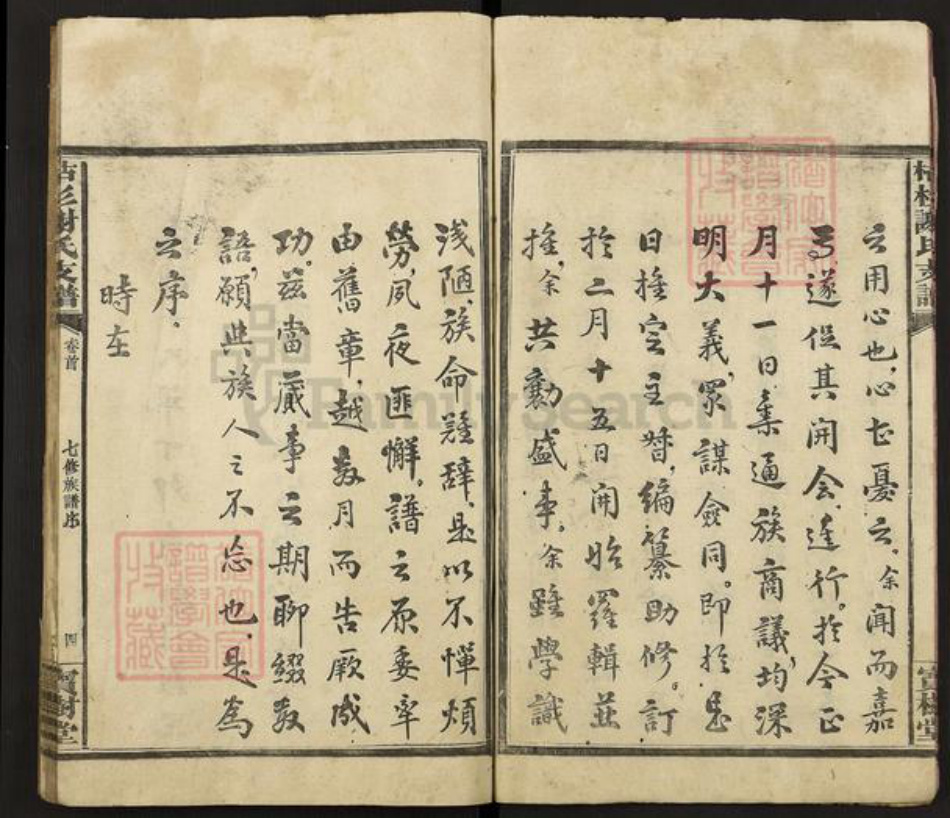 之用心也心甚憂之余聞而嘉
焉遂促其開会進行於今正
月十一日集通族商議均深
明大義眾謀僉同即於是
日推定主贊編纂助修訂
於二月十五日開始羅輯並
推余共勷盛事余雖學識
淺陋族命難辭是以不憚煩
勞夙夜匪懈譜之原委率
由舊章越数月而告厥成
功茲當蕆事之期聊綴数
語願與族人之不忘也是為
之序
時在
謝氏支譜
卷首
七修族譜序
四
寶樹堂
FamilySearch